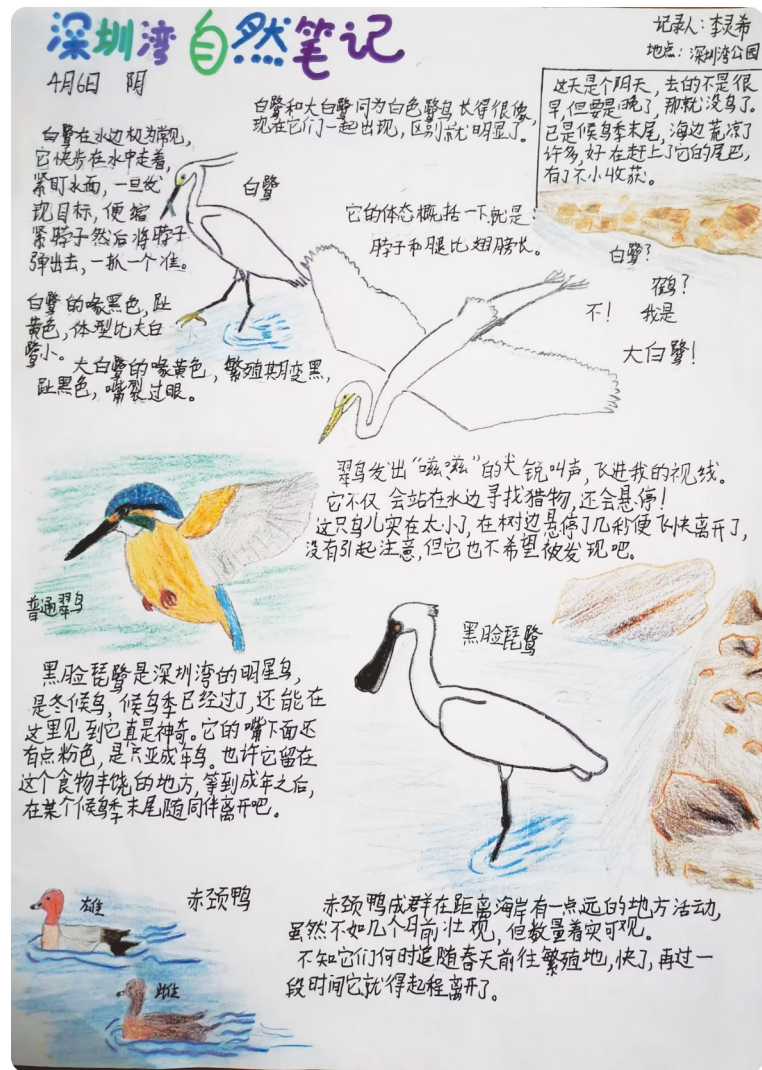 深圳湾自然笔记
记录人：李灵希
地点：深圳湾公园
4月6日 阴
这天是个阴天，去的不是很
早，但要是晚了，那就没鸟了。
已是候鸟季末尾，海边荒凉了
许多，好在赶上了它的尾巴，
有了不小收获。
白鹭和大白鹭同为白色鹭鸟长得很像，
现在它们一起出现，区别就明显了。
白鹭在水边极为常见，
它快步在水中走着，
紧盯水面，一旦发
现目标，便缩
紧脖子然后将脖子
弹出去，一抓一个准。
白鹭
它的体态概括一下就是：
脖子和腿比翅膀长。
白鹭？
鹤？
不！ 我是
大白鹭！
白鹭的喙黑色，趾
黄色，体型比大白
鹭小。
大白鹭的喙黄色，繁殖期变黑，
趾黑色，嘴裂过眼。
翠鸟发出“嗞嗞”的尖锐叫声，飞进我的视线。
它不仅会站在水边寻找猎物，还会悬停！
这只鸟儿实在太小了，在树边悬停了几秒便飞快离开了，
没有引起注意，但它也不希望被发现吧。
普通翠鸟
黑脸琵鹭
黑脸琵鹭是深圳湾的明星鸟，
是冬候鸟，候鸟季已经过了，还能在
这里见到它真是神奇。它的嘴下面还
有点粉色，是只亚成年鸟。也许它留在
这个食物丰饶的地方，等到成年之后，
在某个候鸟季末尾随同伴离开吧。
赤颈鸭
雄
雌
赤颈鸭成群在距离海岸有一点远的地方活动，
虽然不如几个月前壮观，但数量着实可观。
不知它们何时追随春天前往繁殖地，快了，再过一
段时间它就得起程离开了。